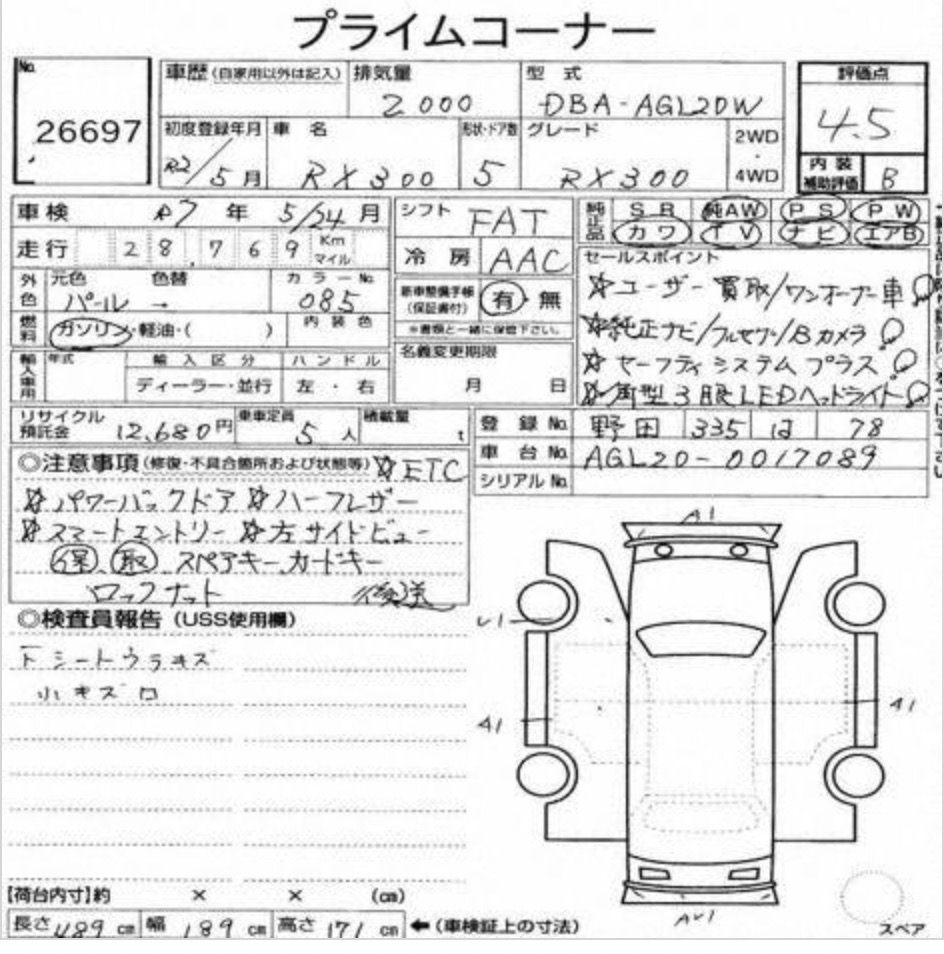 プライムコーナー
No.
26697
車歴(自家用以外は記入)
排気量
2000
型式
DBA-AGL20W
評価点
4.5
初度登録年月
R2/5月
車名
RX300
形状・ドア数
5
グレード
RX300
2WD
・
4WD
内装
補助評価
B
車検
R7年 5/24月
シフト
FAT
純正品
SR 純AW PS PW
カワ TV ナビ エアB
走行
28,769
Km
マイル
冷房
AAC
セールスポイント
☆ユーザー買取/ワンオーナー車
☆純正ナビ/フルセグ/Bカメラ
☆セーフティシステムプラス
☆角型3眼LEDヘッドライト
外色
元色
パール
色替
→
カラーNo.
085
新車整備手帳
(保証書付)
有・無
※書類と一緒に保管下さい。
燃料
ガソリン・軽油・( )
内装色
輸入車用
年式
輸入区分
ディーラー・並行
ハンドル
左・右
名義変更期限
月 日
リサイクル
預託金
12,680円
乗車定員
5人
積載量
t
登録No.
野田 335 は 78
車台No.
AGL20-0017089
シリアルNo.
◎注意事項(修復・不具合箇所および状態等)☆ETC
☆パワーバックドア ☆ハーフレザー
☆スマートエントリー ☆左サイドビュー
保 取 スペアキー、カードキー
ロックナット 後送
◎検査員報告(USS使用欄)
Fシートウラキズ
小キズロ
A1
A1
A1
【荷台内寸】約 × × (cm)
長さ489cm 幅189cm 高さ171cm ←(車検証上の寸法)
スペア